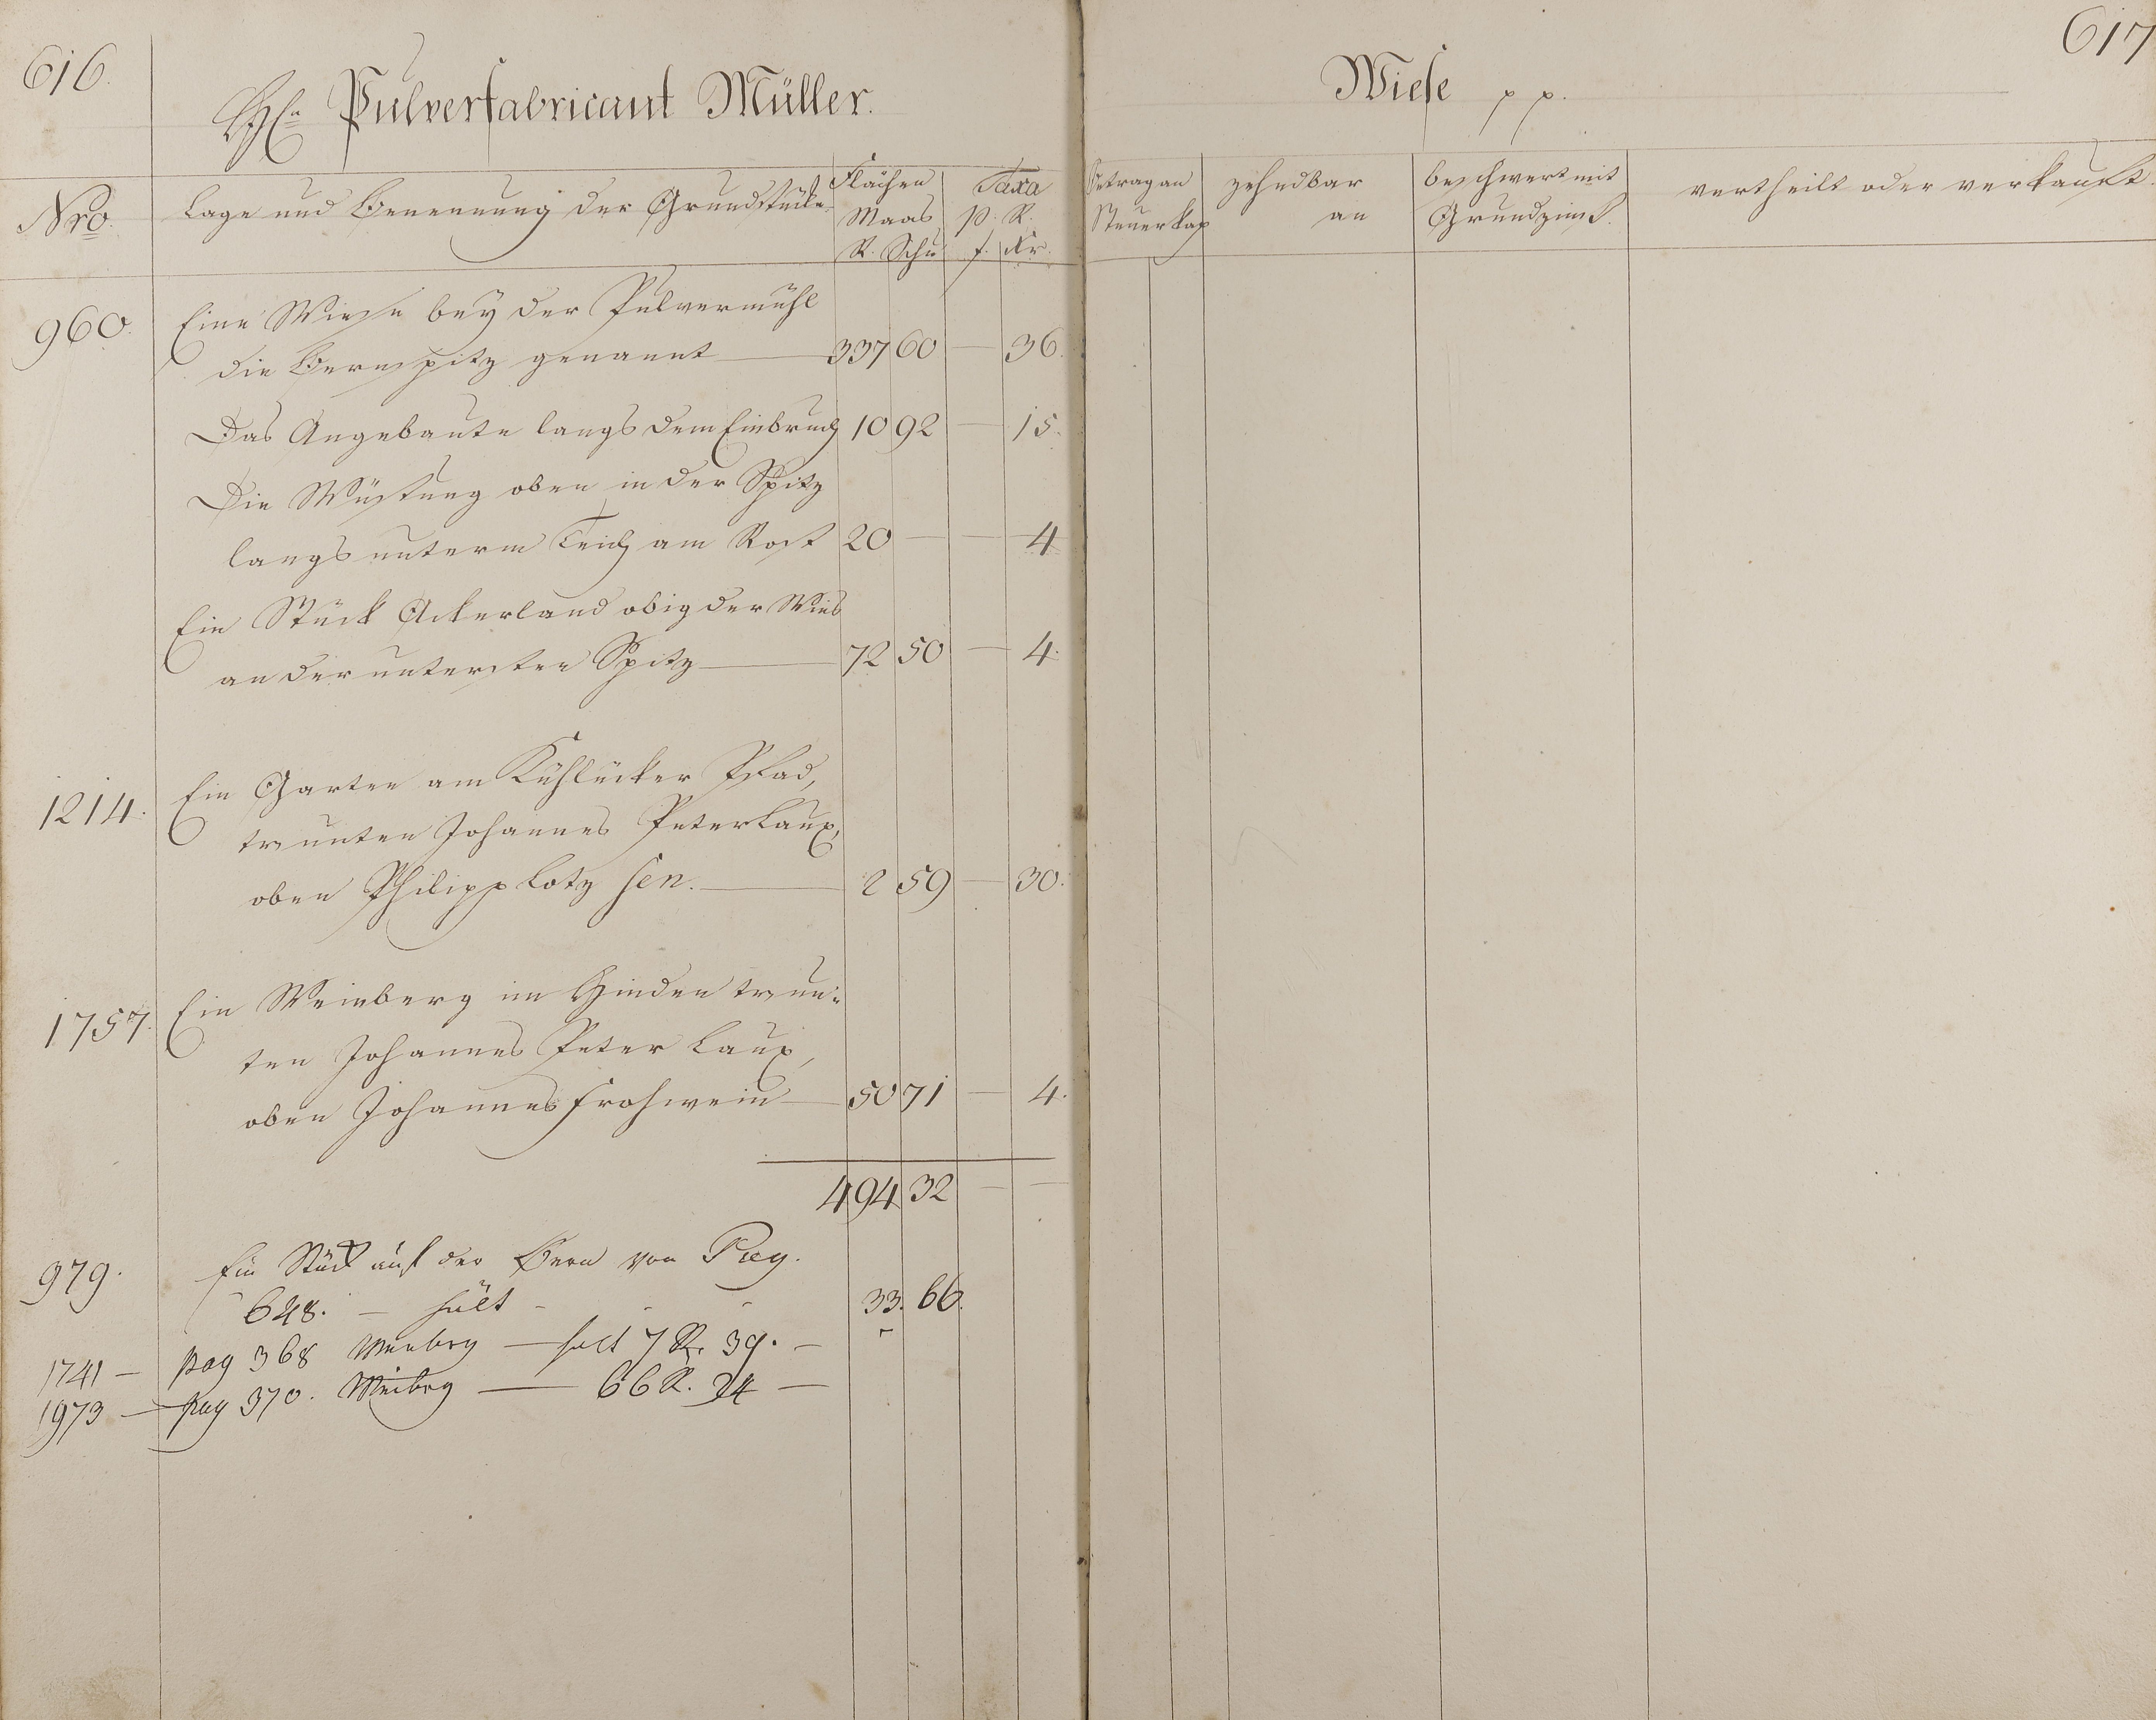 616.
Hn Pulverfabricant Müller.
Nro. Lage und Benennung der Grundstücke Flächen Maas R. Schu Taxa p. R. f. Kr.
960. Eine Wiese bey der Pulvermühl
die Bernspitz genannt 337 60 — 36.
Das Angebaute langs dem Einbruch 10 92 — 15.
Die Wüstung oben in der Spitz
langs unterm Teich am Rost 20 — — 4
Ein Stück Ackerland obig der Wies
an der untersten Spitz 72 50 — 4.
1214. Ein Garten am Kühlücker Pfad,
trunten Johannes Peter Laux,
oben Philipp Lotz sen. 2 59 — 30.
1757. Ein Weinberg im Hinden trun-
ten Johannes Peter Laux,
oben Johannes Frohwein 50 71 — 4.
494 32 — —
979. Ein Stück auf der Bern von Pag.
648. — hält 33. 66.
1741 — pag 368 Weinbrg — hält 7 R. 39. —
1973 — pag 370. Weinbrg — 66 R. 24 —
617
Wiese pp.
Betrag an Steuerkap zehndbar an beschwert mit Grundzinß. vertheilt oder verkauft.